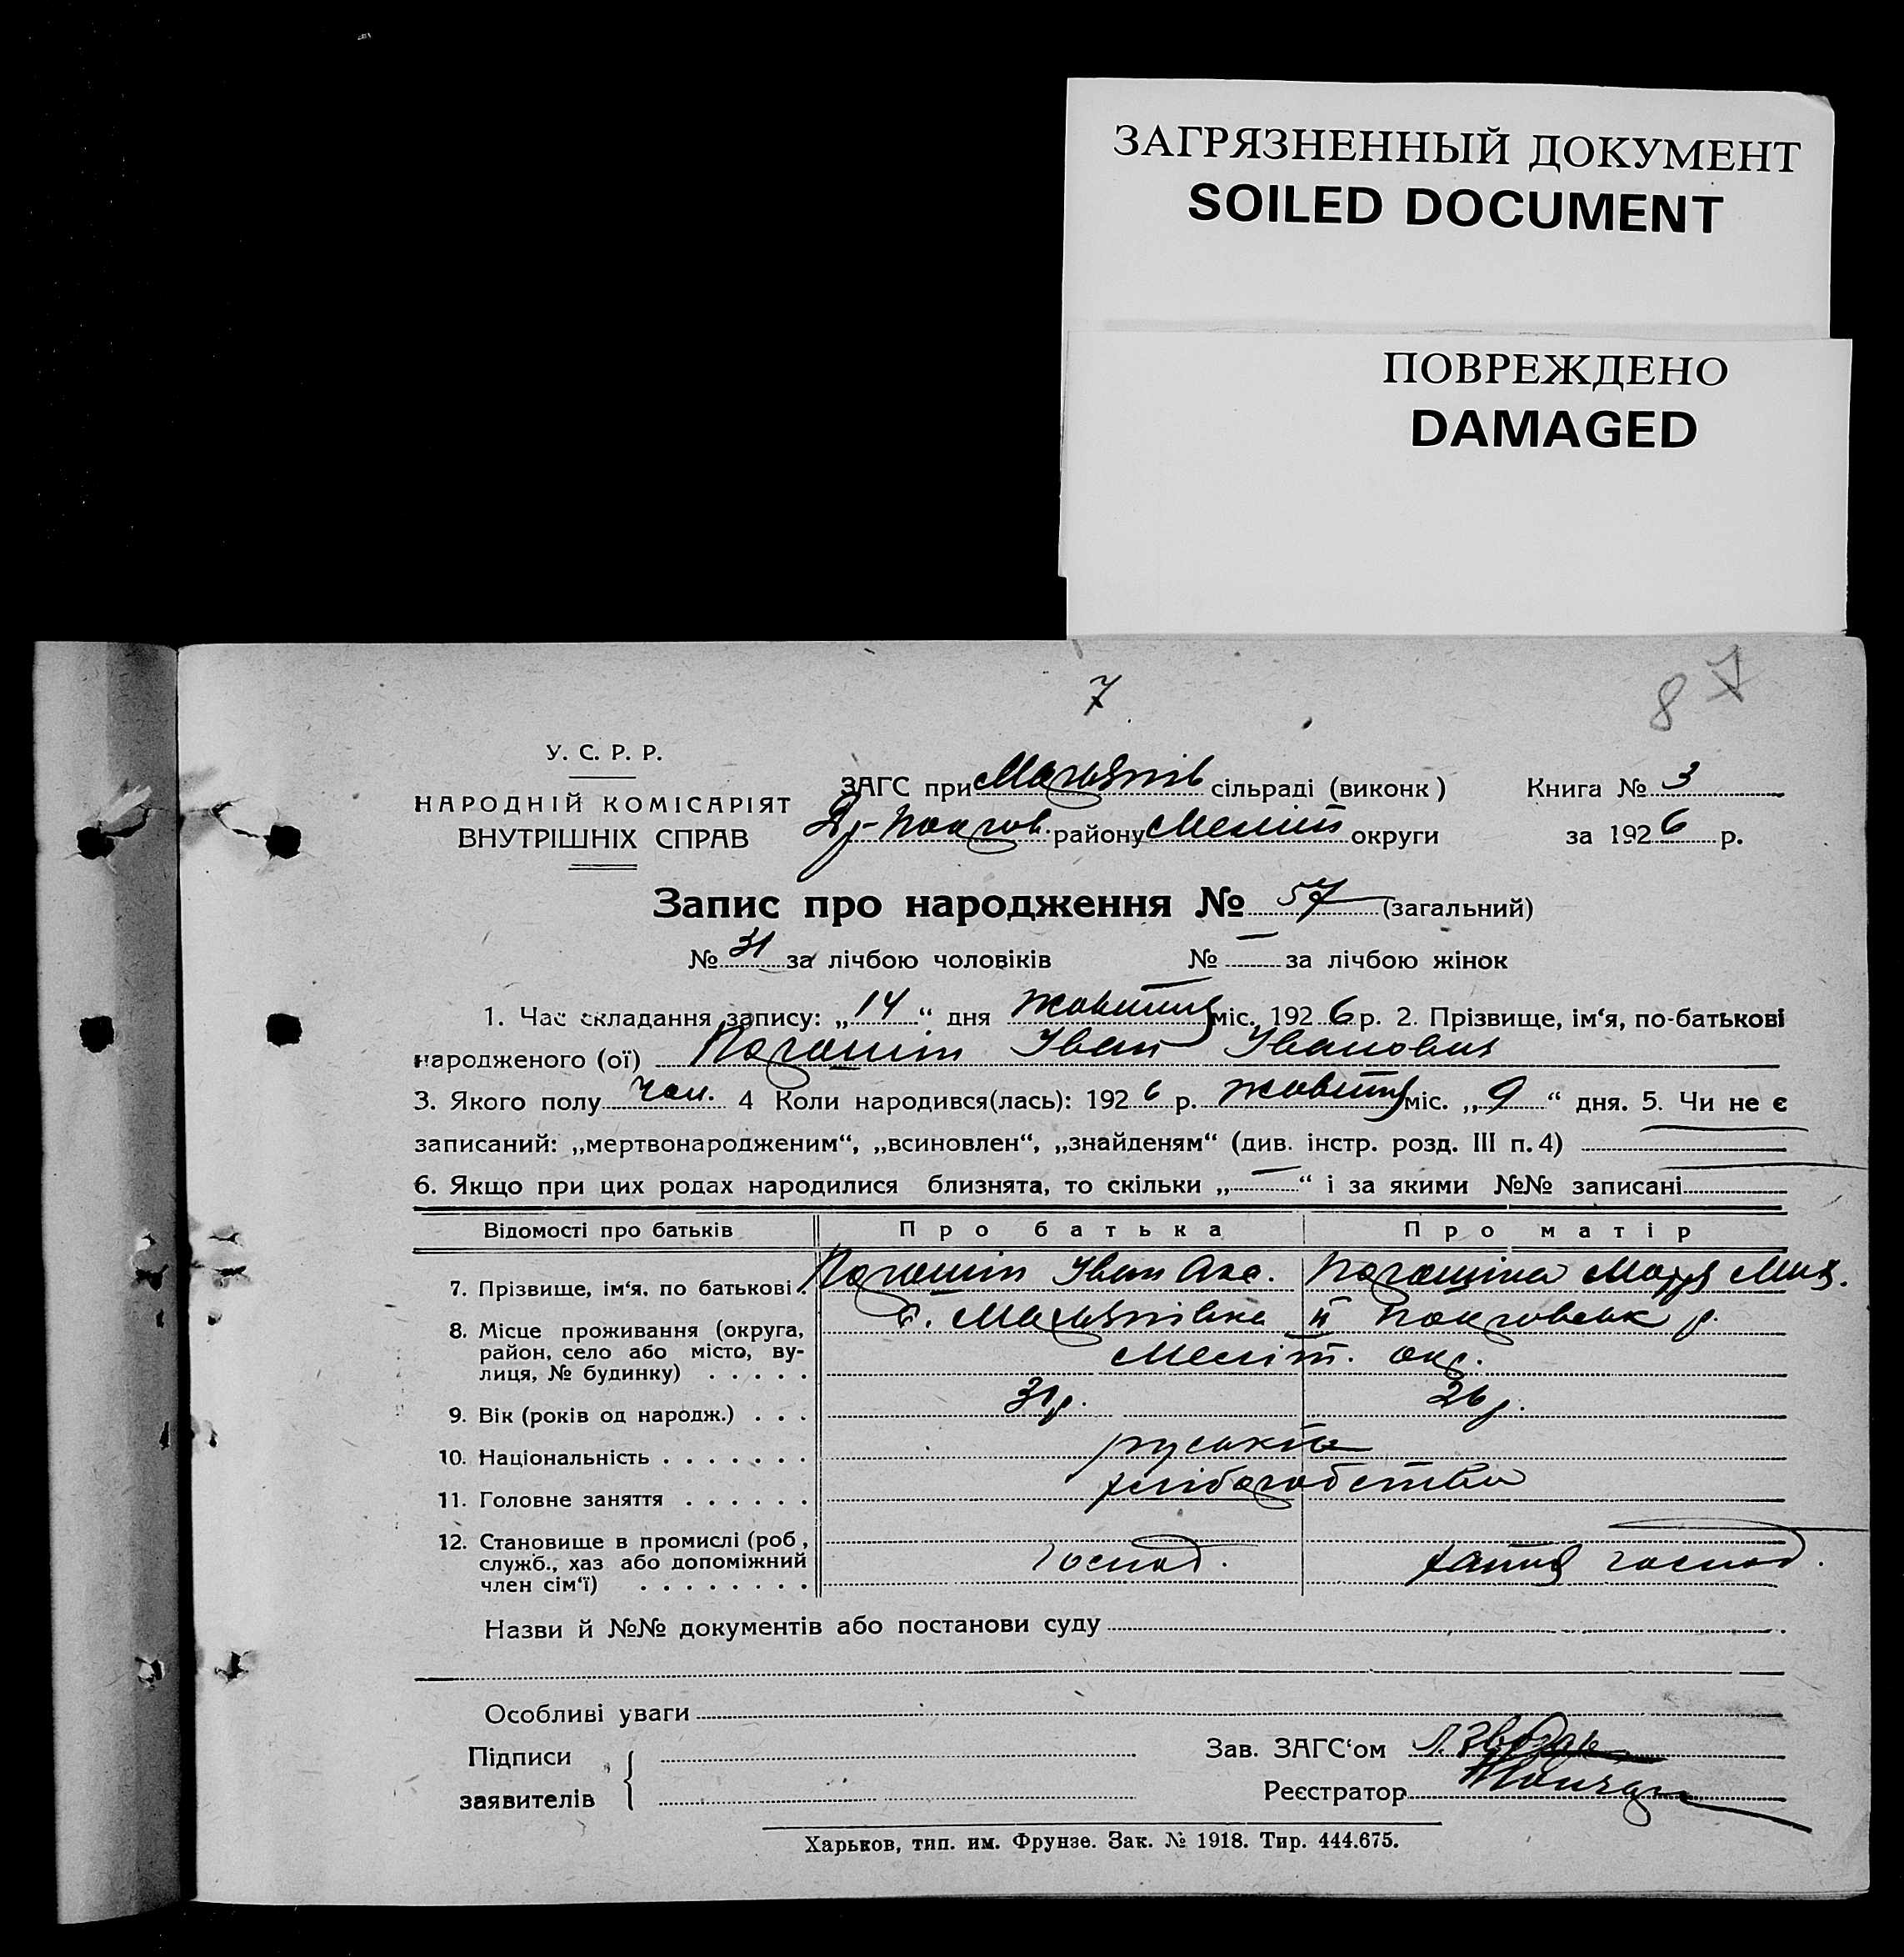 ЗАГРЯЗНЕННЫЙ ДОКУМЕНТ
SOILED DOCUMENT
ПОВРЕЖДЕНО
DAMAGED
7
8 7
У. С. Р. Р.
НАРОДНІЙ КОМІСАРІЯТ
ВНУТРІШНІХ СПРАВ
ЗАГС при сільраді (виконк) Книга № 3
району Меліт округи за 1926 р.
Запис про народження № 57 (загальний)
№ 31 за лічбою чоловіків № — за лічбою жінок
1. Час складання запису: „14“ дня жовтня міс. 1926 р. 2. Прізвище, ім‘я, по-батькові
народженого (ої) Іван Іванович
3. Якого полу чол. 4 Коли народився(лась): 1926 р. жовтня міс. „9“ дня. 5. Чи не є
записаний: „мертвонародженим“, „всиновлен“, „знайденям“ (див. інстр. розд. III п. 4) —
6. Якщо при цих родах народилися близнята, то скільки „—“ і за якими №№ записані —
Відомості про батьків Про батька Про матір
7. Прізвище, ім‘я, по батькові . Іван
8. Місце проживання (округа,
район, село або місто, ву-
лиця, № будинку) . . . . . Меліт. окр.
9. Вік (років од народж.) . . . 31 р. 26 р.
10. Національність . . . . . . . руські
11. Головне заняття . . . . . . хліборобство
12. Становище в промислі (роб,
служб., хаз або допоміжний
член сім‘ї) . . . . . . . . господ. хатня господ.
Назви й №№ документів або постанови суду
Особливі уваги
Підписи
заявителів
Зав. ЗАГС‘ом
Реєстратор
Харьков, тип. им. Фрунзе. Зак. № 1918. Тир. 444.675.